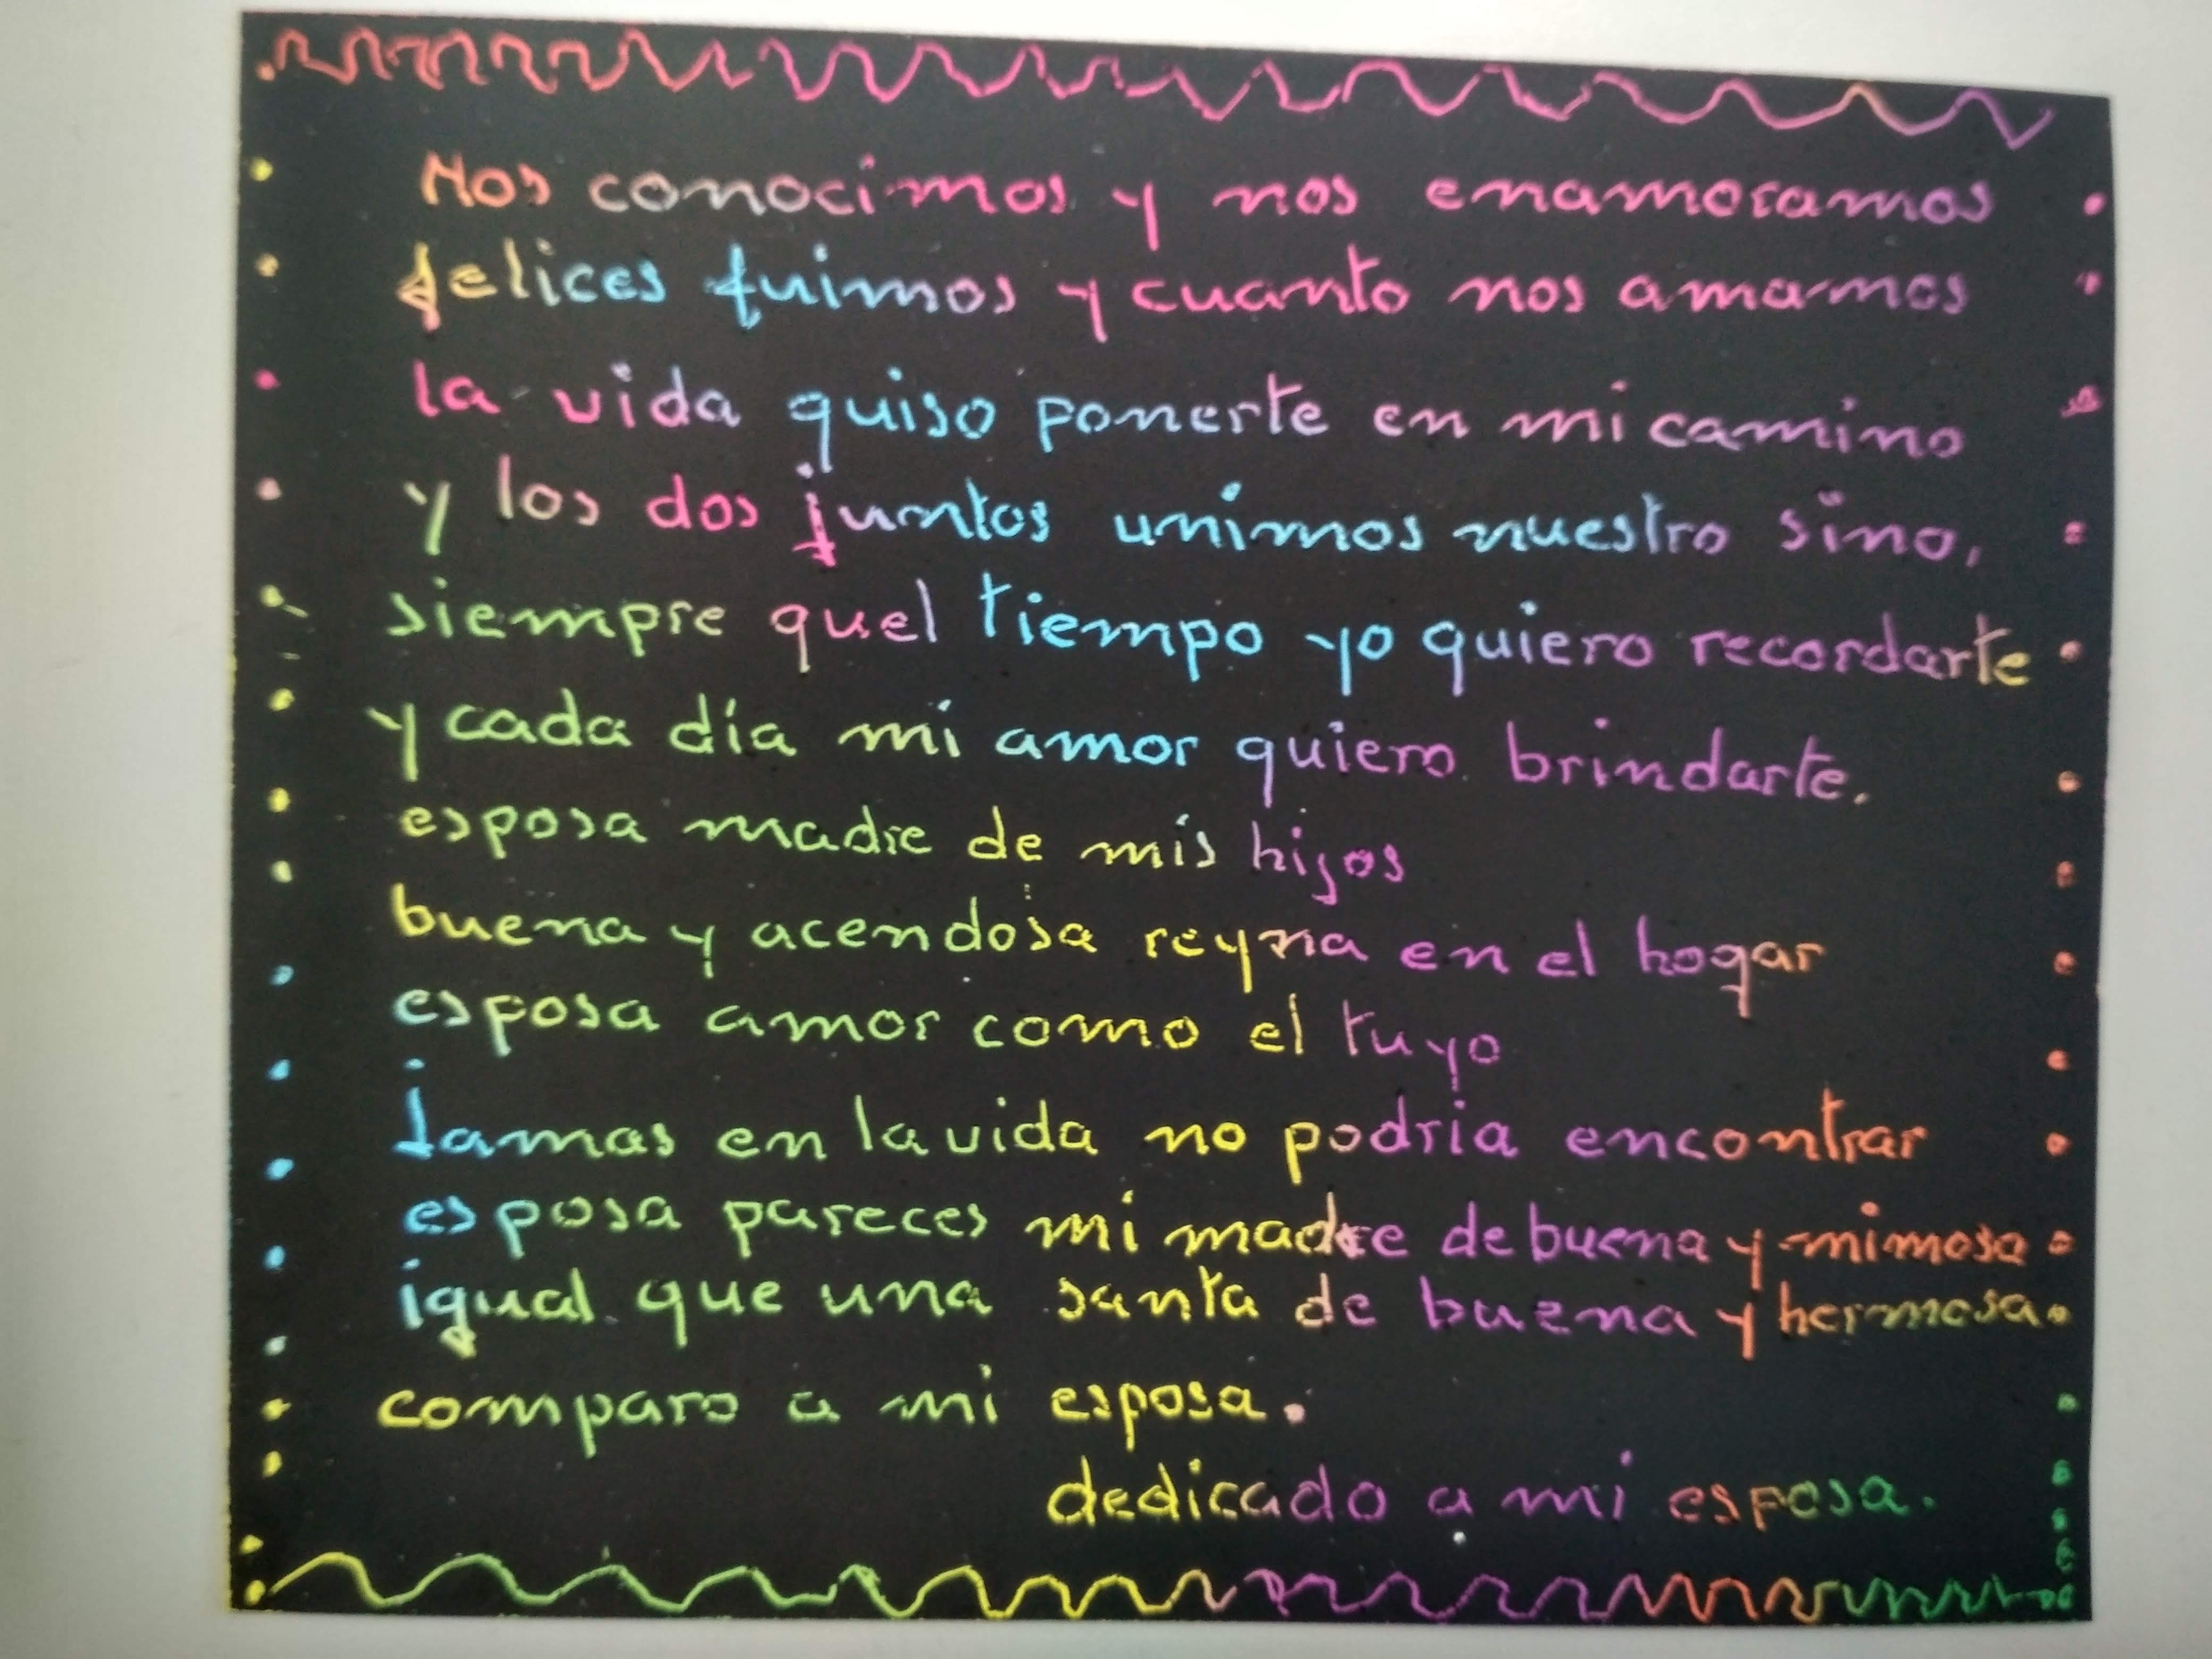 Nos conocimos y nos enamoramos
felices fuimos y cuanto nos amamos
la vida quiso ponerte en mi camino
y los dos juntos unimos nuestro sino,
siempre quel tiempo yo quiero recordarte
y cada día mi amor quiero brindarte.
esposa madre de mis hijos
buena y acendosa reyna en el hogar
esposa amor como el tuyo
Jamas en la vida no podria encontrar
esposa pareces mi madre de buena y mimosa
igual que una santa de buena y hermosa.
comparo a mi esposa.
dedicado a mi esposa.